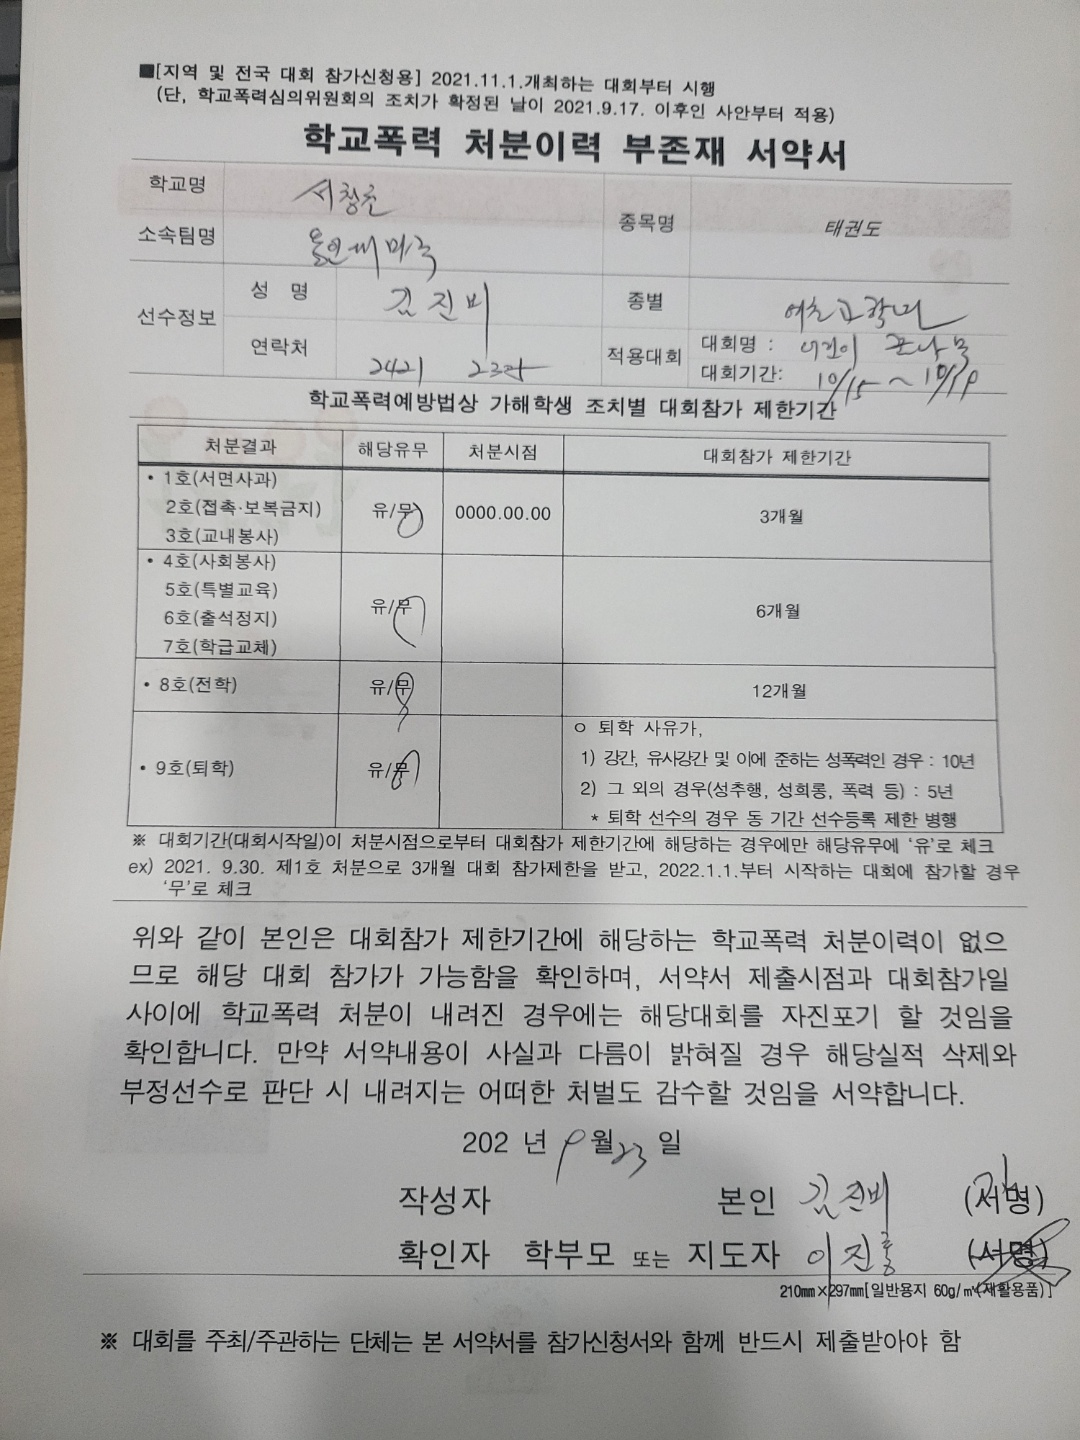 ■[지역 및 전국 대회 참가신청용] 2021.11.1.개최하는 대회부터 시행
(단, 학교폭력심의위원회의 조치가 확정된 날이 2021.9.17. 이후인 사안부터 적용)
학교폭력 처분이력 부존재 서약서
학교명 서창초
소속팀명
종목명 태권도
선수정보 성 명 김진비
종별 여초고학년
연락처 2421
적용대회 대회명 : 어린이
대회기간: 10/15 ~ 10/19
학교폭력예방법상 가해학생 조치별 대회참가 제한기간
처분결과 해당유무 처분시점 대회참가 제한기간
• 1호(서면사과)
2호(접촉·보복금지) 유/무 0000.00.00 3개월
3호(교내봉사)
• 4호(사회봉사)
5호(특별교육)
유/무 6개월
6호(출석정지)
7호(학급교체)
• 8호(전학) 유/무 12개월
• 9호(퇴학) 유/무
ㅇ 퇴학 사유가,
1) 강간, 유사강간 및 이에 준하는 성폭력인 경우 : 10년
2) 그 외의 경우(성추행, 성희롱, 폭력 등) : 5년
* 퇴학 선수의 경우 동 기간 선수등록 제한 병행
※ 대회기간(대회시작일)이 처분시점으로부터 대회참가 제한기간에 해당하는 경우에만 해당유무에 ‘유’로 체크
ex) 2021. 9.30. 제1호 처분으로 3개월 대회 참가제한을 받고, 2022.1.1.부터 시작하는 대회에 참가할 경우
‘무’로 체크
위와 같이 본인은 대회참가 제한기간에 해당하는 학교폭력 처분이력이 없으
므로 해당 대회 참가가 가능함을 확인하며, 서약서 제출시점과 대회참가일
사이에 학교폭력 처분이 내려진 경우에는 해당대회를 자진포기 할 것임을
확인합니다. 만약 서약내용이 사실과 다름이 밝혀질 경우 해당실적 삭제와
부정선수로 판단 시 내려지는 어떠한 처벌도 감수할 것임을 서약합니다.
202 년 9월 23 일
작성자 본인 김진비 (서명)
확인자 학부모 또는 지도자 이진룡 (서명)
210㎜×297㎜[일반용지 60g/㎡(재활용품)]
※ 대회를 주최/주관하는 단체는 본 서약서를 참가신청서와 함께 반드시 제출받아야 함